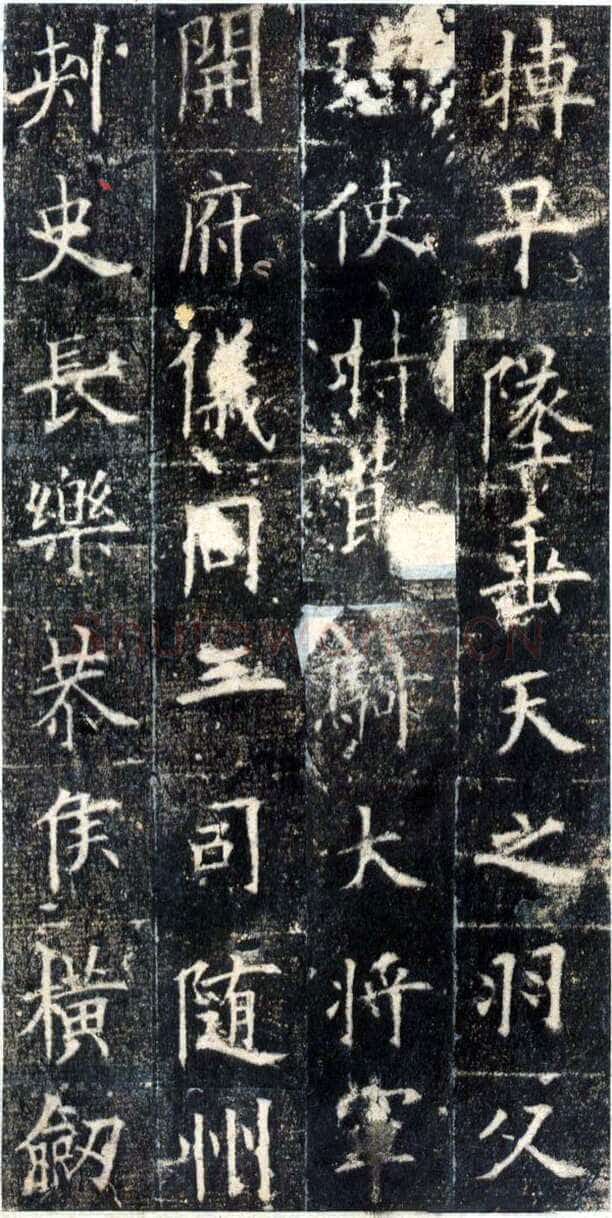 摶早墜垂天之羽父
使騎大將軍
開府儀同三司隨州
刾史長樂恭侯橫劒
Shufawang.CN